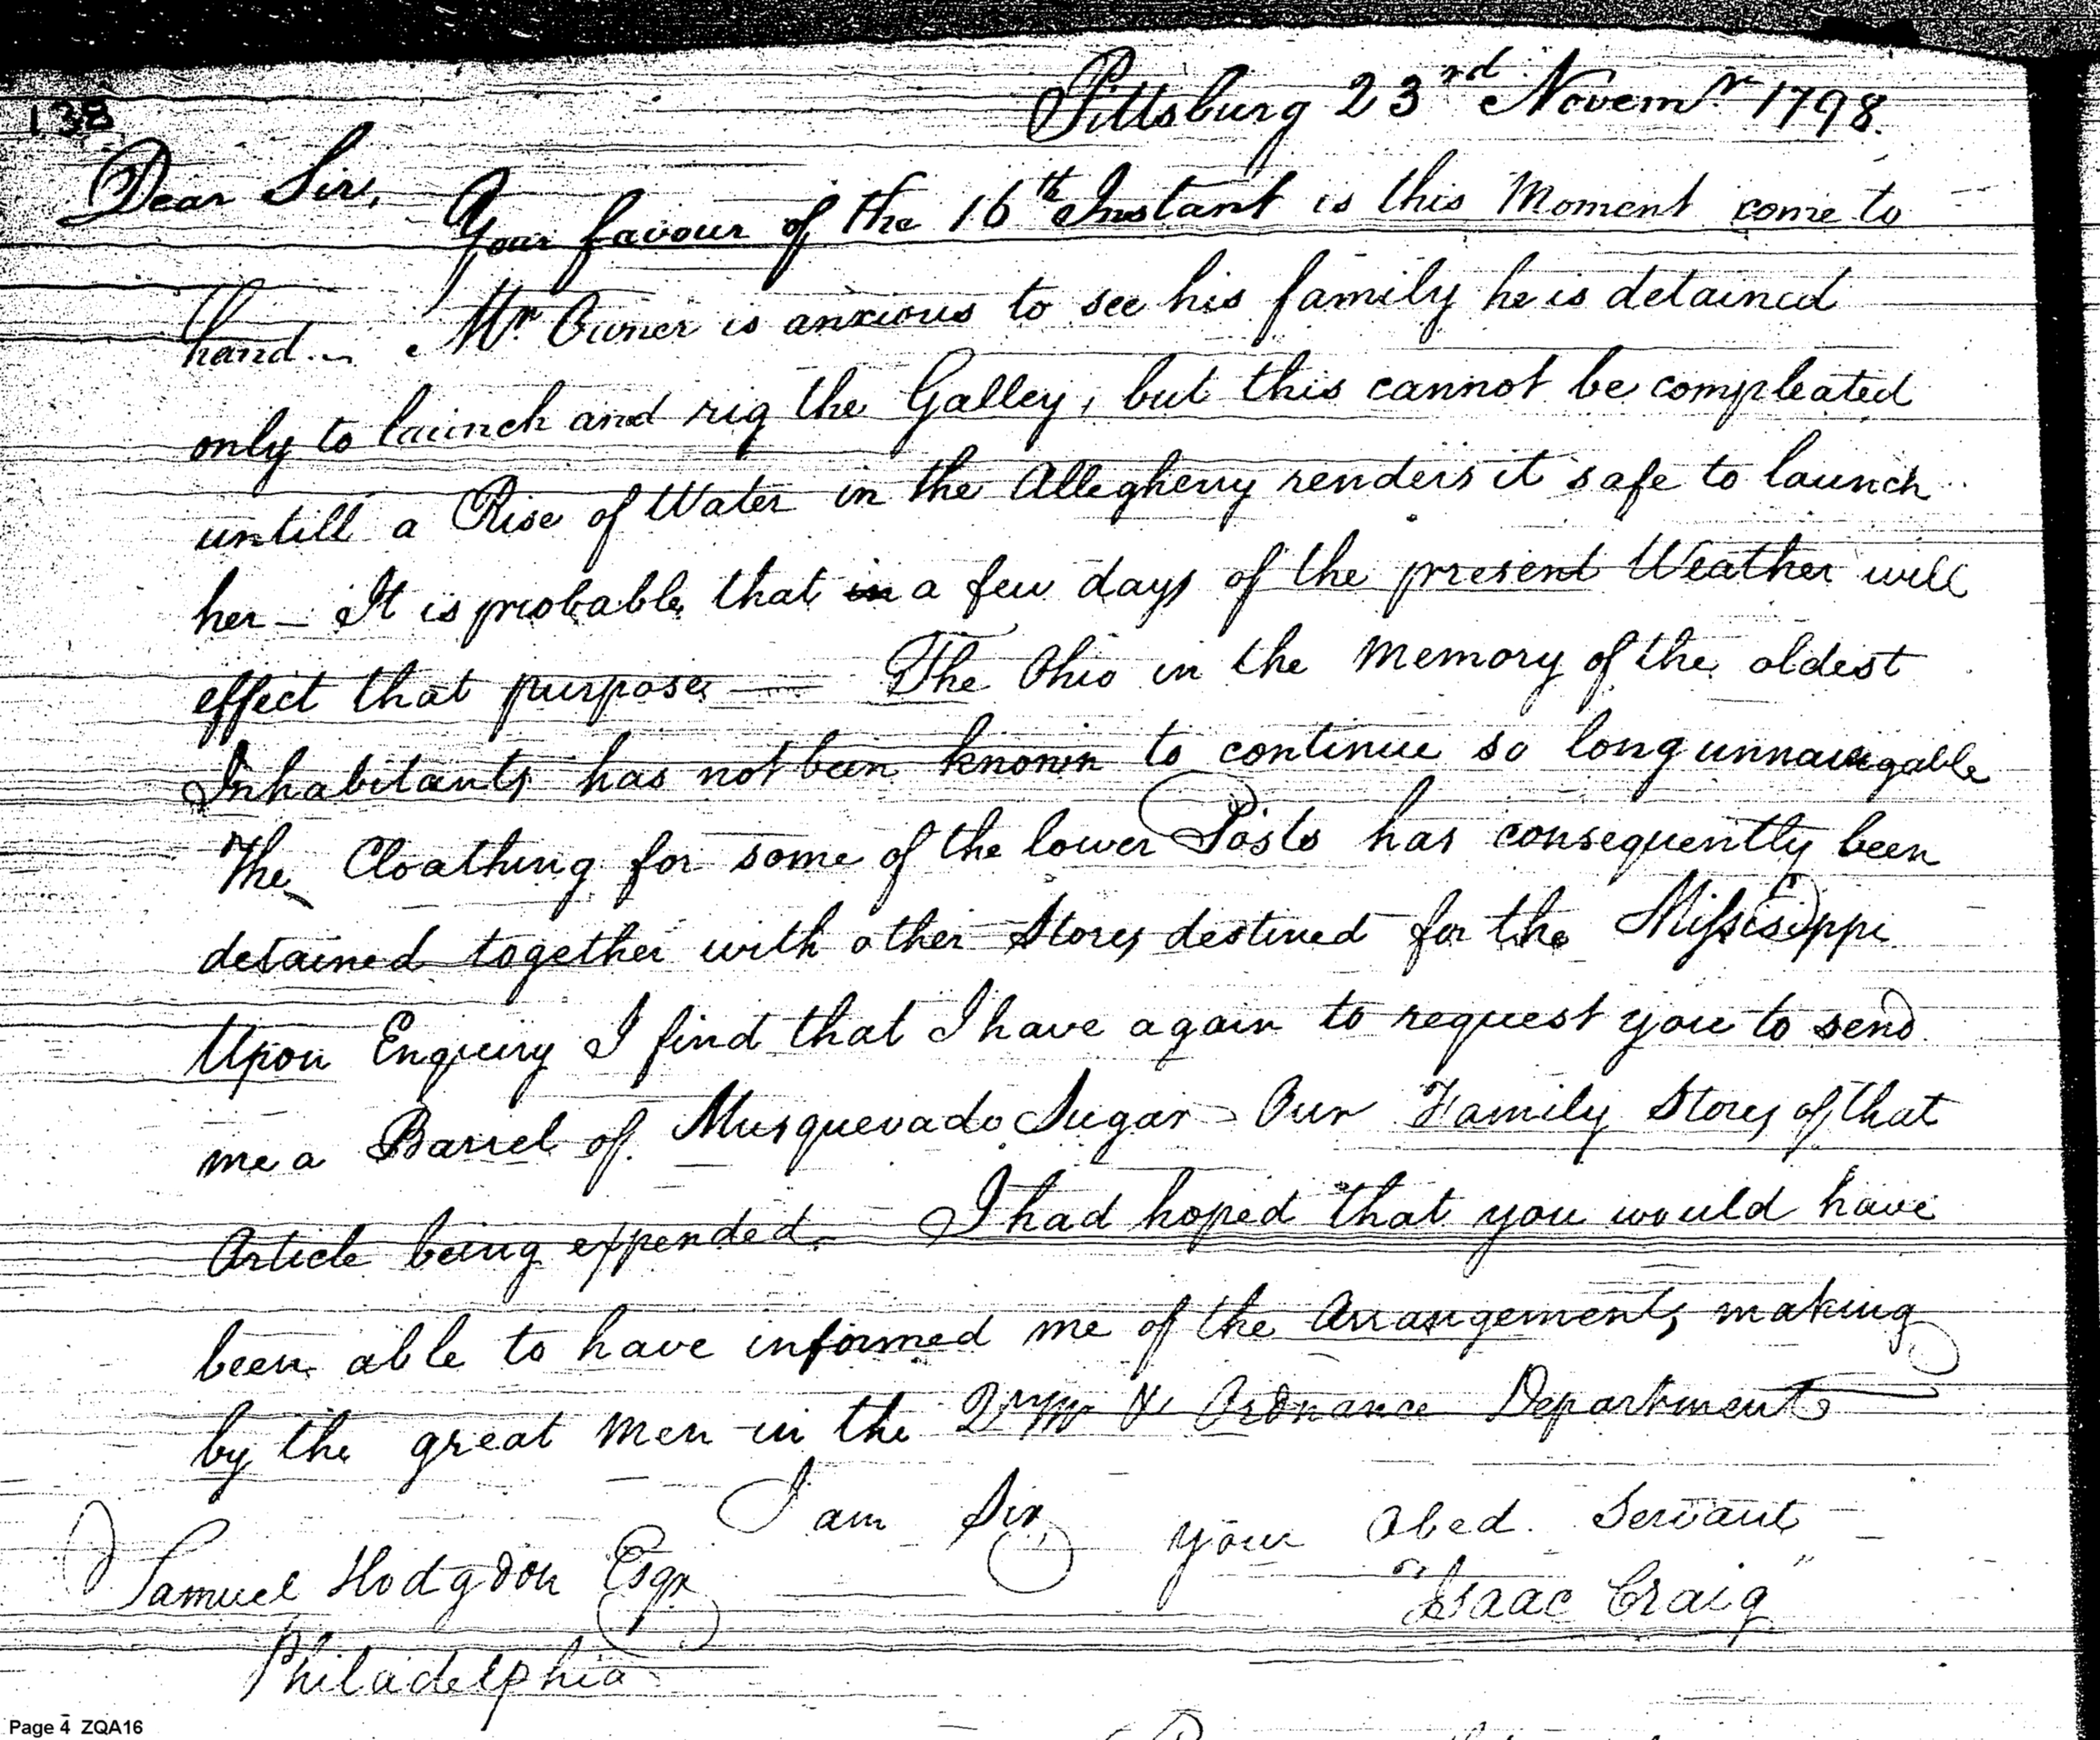 Pittsburg 23rd Novemr 1798.
138
Dear Sir,
Your favour of the 16th Instant is this Moment come to
hand.– Mr. Owner is anxious to see his family he is detained
only to launch and rig the Galley, but this cannot be compleated
untill a Rise of Water in the Allegheny renders it safe to launch
her – It is probable that in a few days of the present Weather will
effect that purpose — The Ohio in the Memory of the oldest
Inhabitants has not been known to continue so long unnavigable
The Cloathing for some of the lower Posts has consequently been
detained together with other Stores destined for the Missisippi
Upon Enquiry I find that I have again to request you to send
me a Barrel of Musquevado Sugar – Our Family Stores of that
Article being expended. I had hoped that you would have
been able to have informed me of the Arrangements making
by the great Men in the & Ordnance Department
I am Sir,
your Obed. Servant –
"Isaac Craig"
Samuel Hodgdon Esqr
Philadelphia
Page 4 ZQA16